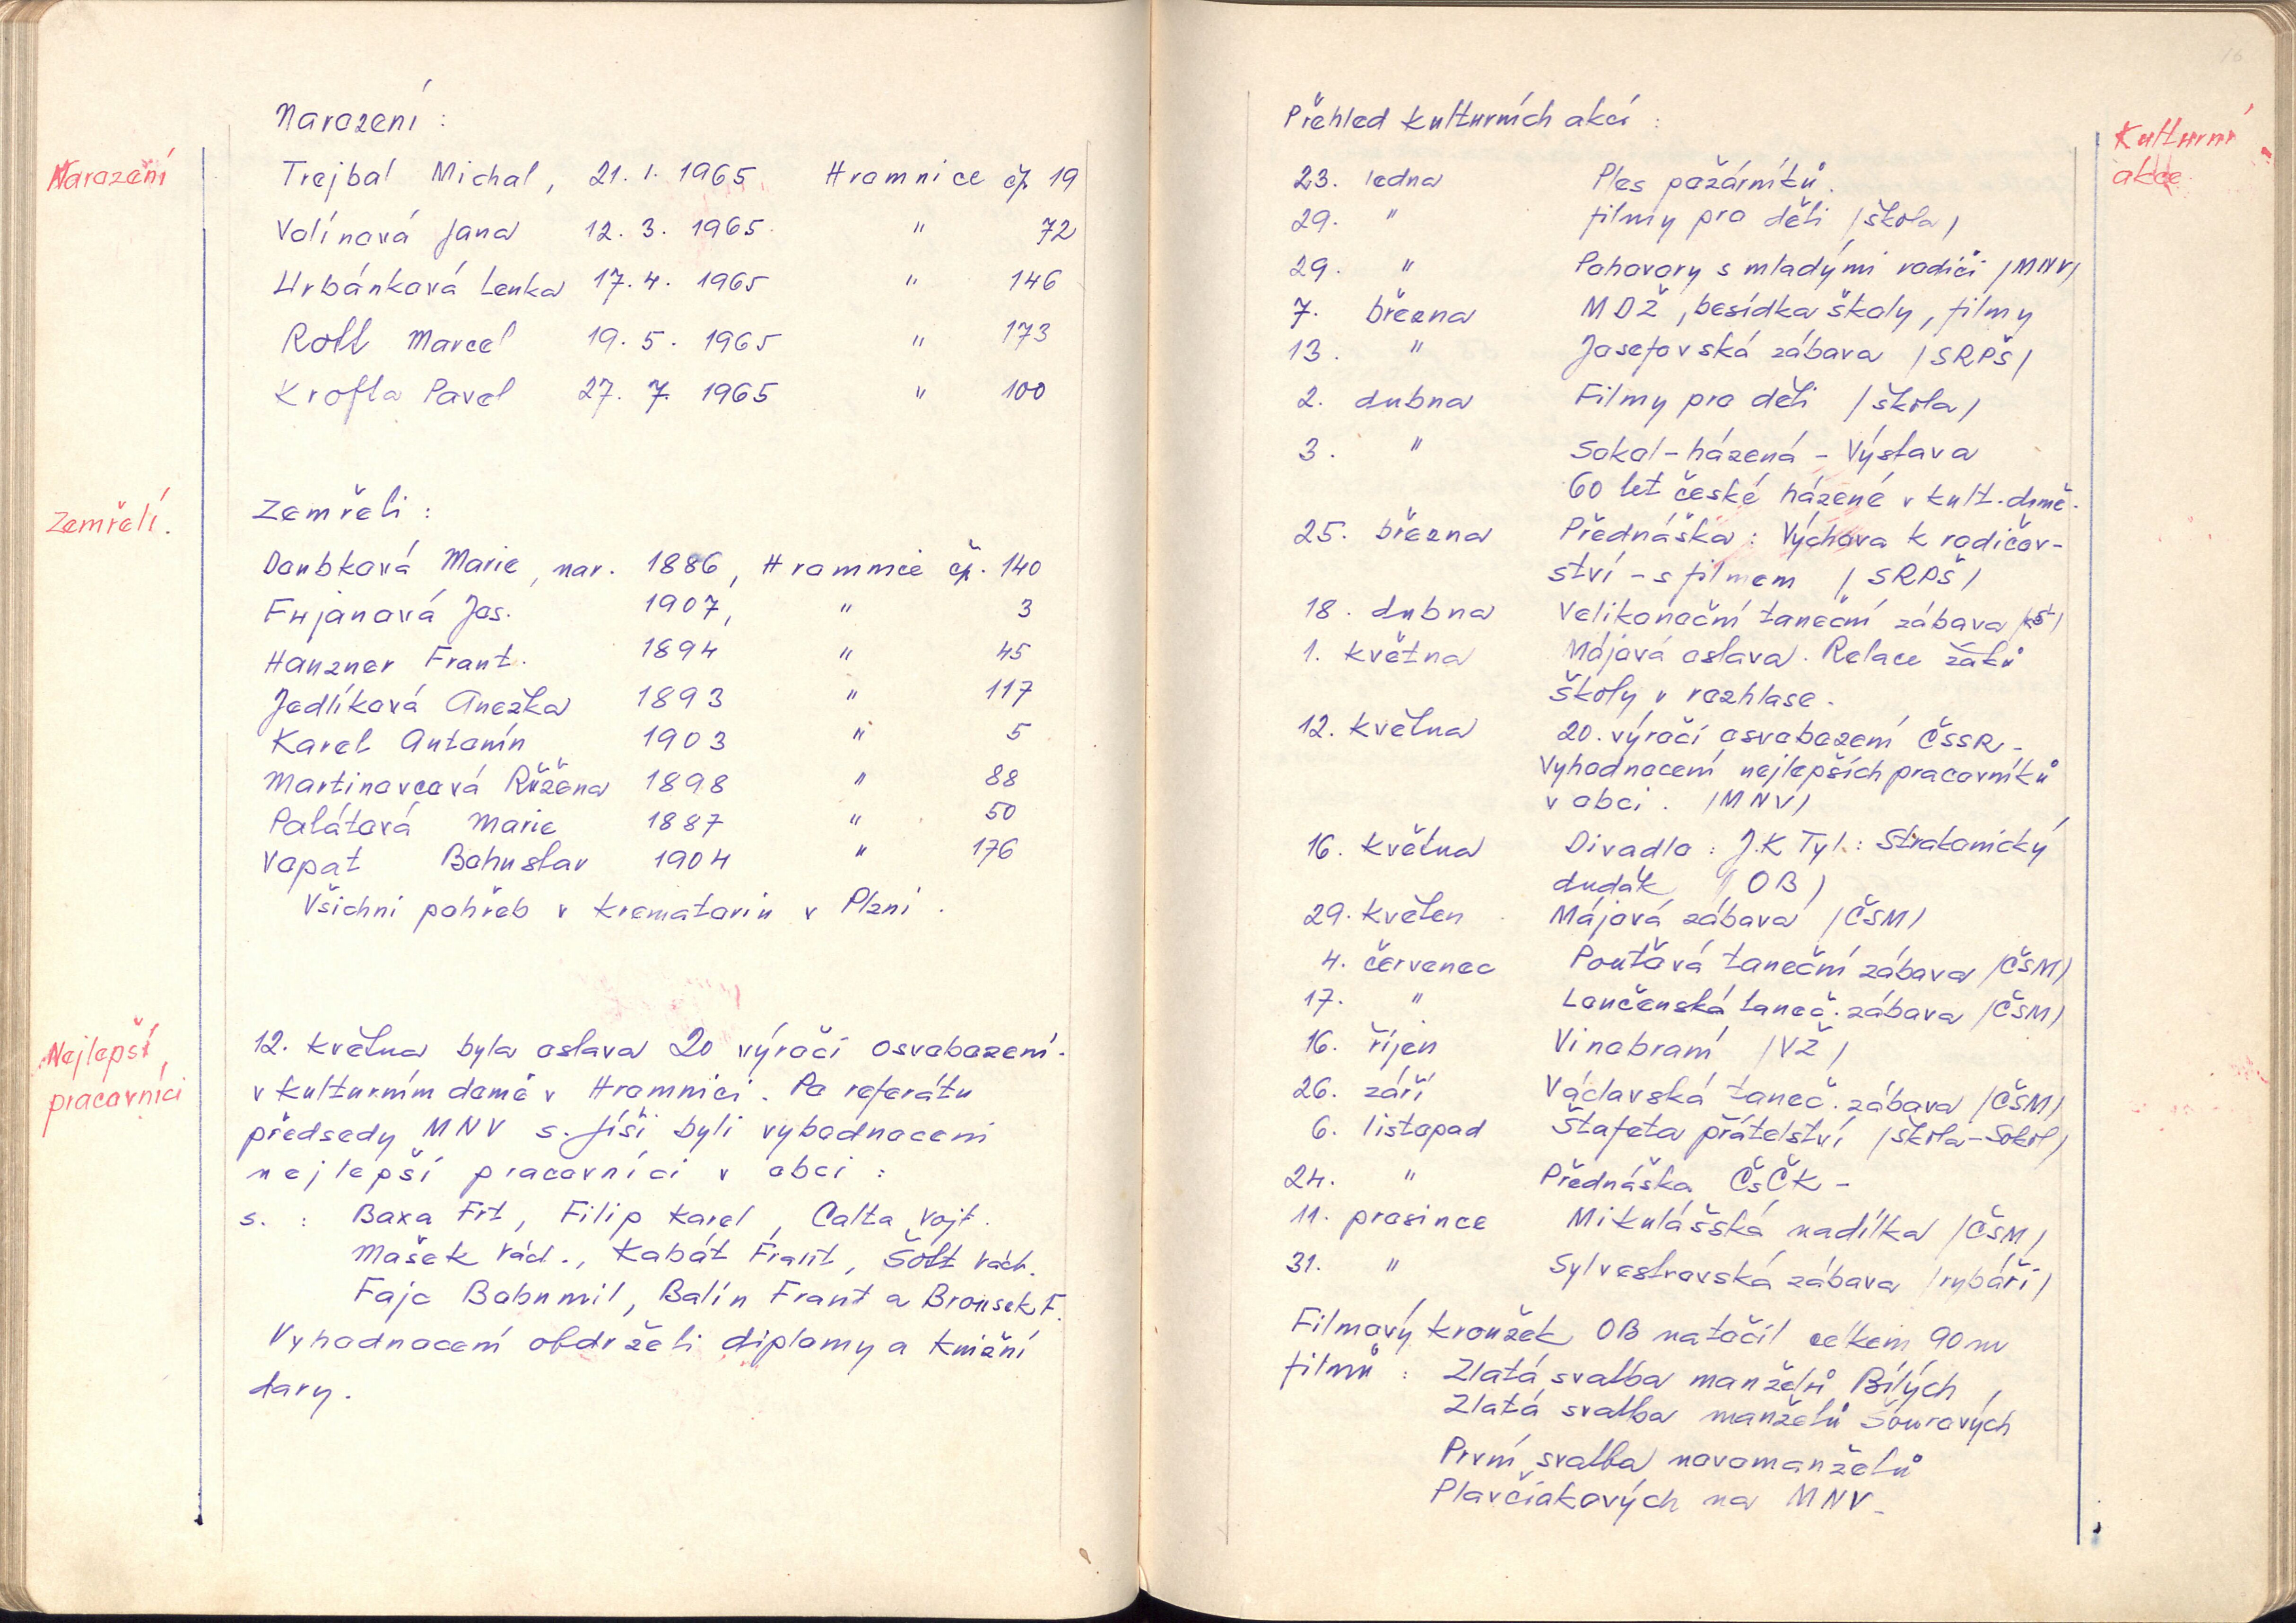 Narození
Narození :
Trejbal Michal, 21. 1. 1965 Hromnice čp 19
Volínová Jana 12. 3. 1965. " 72
Urbánková Lenka 17. 4. 1965 " 146
Rott Marcel 19. 5. 1965 " 173
Krofta Pavel 27. 7. 1965 " 100
Zemřelí.
Zemřeli :
Doubková Marie, nar. 1886, Hromnice čp. 140
Fujanová Jos. 1907, " 3
Hanzner Frant. 1894 " 45
Jedlíková Anežka 1893 " 117
Karel Antonín 1903 " 5
Martinovcová Růžena 1898 " 88
Palátová Marie 1887 " 50
Vopat Bohuslav 1904 " 176
Všichni pohřeb v krematoriu v Plzni.
Nejlepší
pracovníci
12. května byla oslava 20 výročí osvobození.
v kulturním domě v Hromnici. Po referátu
předsedy MNV s. Jíši byli vyhodnoceni
nejlepší pracovníci v obci :
s. : Baxa Frt, Filip Karel, Calta Vojt.
Mašek Václ., Kabát Frant, Šolt Václ.
Fajc Bohumil, Balín Frant a Brousek F.
Vyhodnocení obdrželi diplomy a knižní
dary.
16
Kulturní
akce.
Přehled kulturních akcí :
23. ledna Ples požárníků.
29. " filmy pro děti /škola/
29. " Pohovory s mladými rodiči /MNV/
7. března MDŽ, besídka školy, filmy
13. " Josefovská zábava /SRPŠ/
2. dubna Filmy pro děti /škola/
3. " Sokol - házená - Výstava
60 let české házené v kult. domě.
25. března Přednáška : Výchova k rodičov-
ství - s filmem /SRPŠ/
18. dubna Velikonoční taneční zábava
1. května Májová oslava. Relace žáků
školy v rozhlase.
12. května 20. výročí osvobození ČSSR -
Vyhodnocení nejlepších pracovníků
v obci. /MNV/
16. května Divadlo : J.K Tyl : Strakonický
dudák /OB/
29. květen Májová zábava /ČSM/
4. červenec Pouťová taneční zábava /ČSM/
17. " Lončenská taneč. zábava /ČSM/
16. říjen Vinobraní /VŽ/
26. září Václavská taneč. zábava /ČSM/
6. listopad Štafeta přátelství /škola-Sokol/
24. " Přednáška ČsČK -
11. prosince Mikulášská nadílka /ČSM/
31. " Sylvestrovská zábava /rybáři/
Filmový kroužek OB natočil celkem 90 m
filmů : Zlatá svatba manželů Bílých,
Zlatá svatba manželů Šourových
První svatba novomanželů
Plavčiakových na MNV -